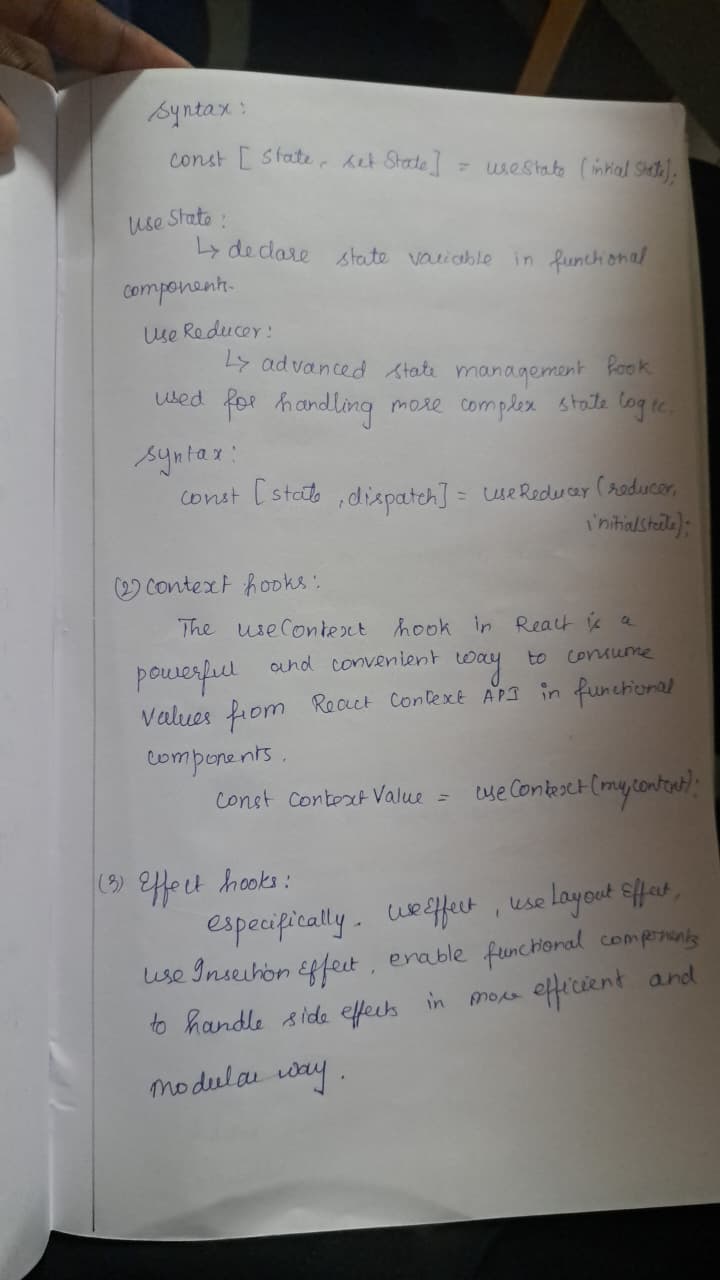 Syntax:
const [state, setState] = useState (initial State);
use State:
↳ declare state variable in functional
component.
Use Reducer:
↳ advanced state management hook
used for handling more complex state logic.
Syntax:
const [state, dispatch] = useReducer (reducer,
initialState);
(2) Context hooks:
The useContext hook in React is a
powerful and convenient way to consume
values from React Context API in functional
components.
Const Context Value = useContext (my content);
(3) Effect hooks:
especifically. useEffect, use Layout Effect,
use Insection Effect, enable functional components
to handle side effects in more efficient and
modular way.